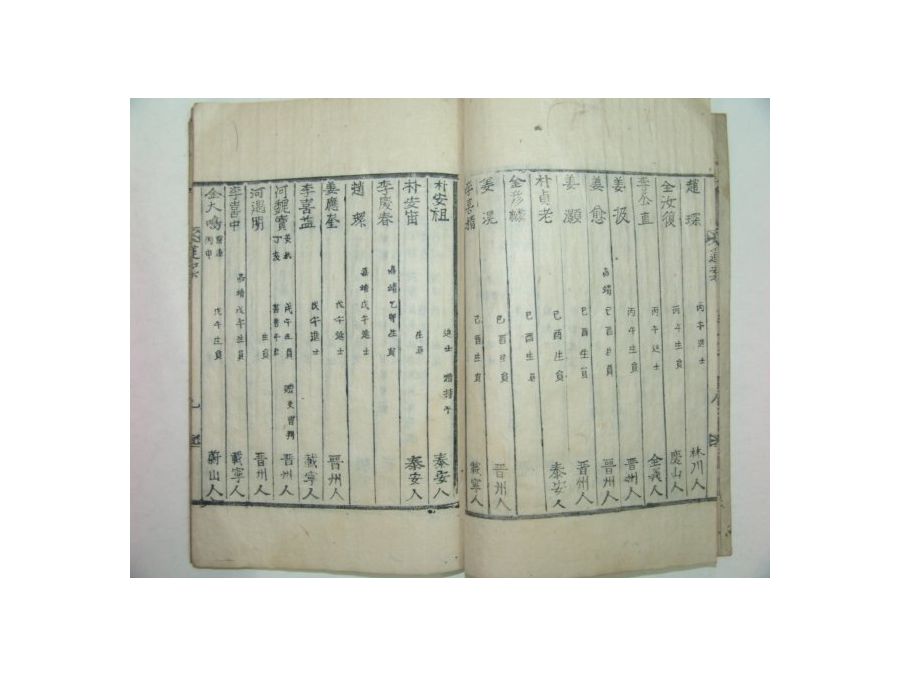 趙琛 丙午進士 林川人
金汝復 丙午生員 慶山人
李公直 丙午進士 全義人
姜汲 丙午生員 晋州人
姜愈 嘉靖己酉生員 晋州人
姜灝 己酉生員 晋州人
朴貞老 己酉生員 泰安人
己酉生員
姜混 己酉生員 晋州人
己酉生員 載寧人
朴安祖 進士 贈持平 泰安人
朴安宙 生員 泰安人
李慶春 嘉靖乙卯生員
趙瑔 嘉靖戊午進士
姜應奎 戊午進士 晋州人
李喜益 戊午進士 載寧人
河魏寶 戊午生員 贈吏曹判 晋州人
河遇 生員 晋州人
李喜中 嘉靖戊午生員 載寧人
金大鳴 戊午生員 蔚山人
蓮案
九